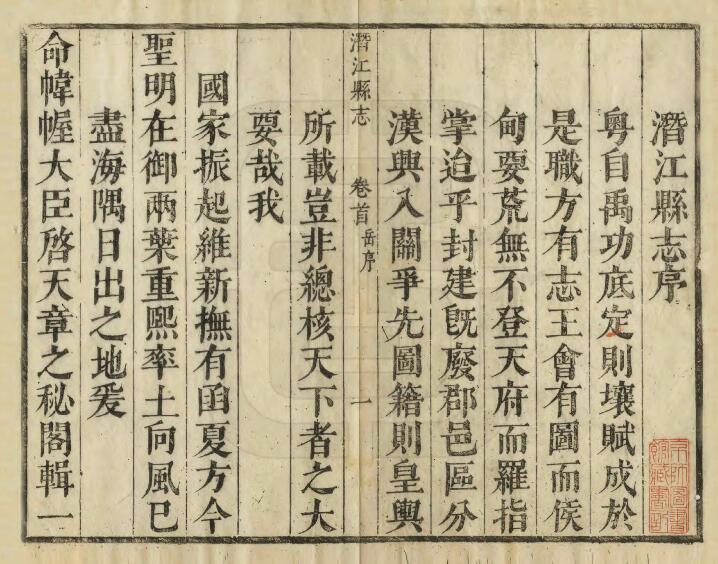 潛江縣志序
粤自禹功底定則壤賦成於
是職方有志王會有圖而侯
甸要荒無不登天府而羅指
掌迨乎封建旣廢郡邑區分
漢興入關爭先圖籍則皇輿
潛江縣志 卷首 岳序 一
所載豈非總核天下者之大
要哉我
國家振起維新撫有函夏方今
聖明在御兩葉重熙率土向風已
盡海隅日出之地爰
命帷幄大臣啓天章之秘閣輯一